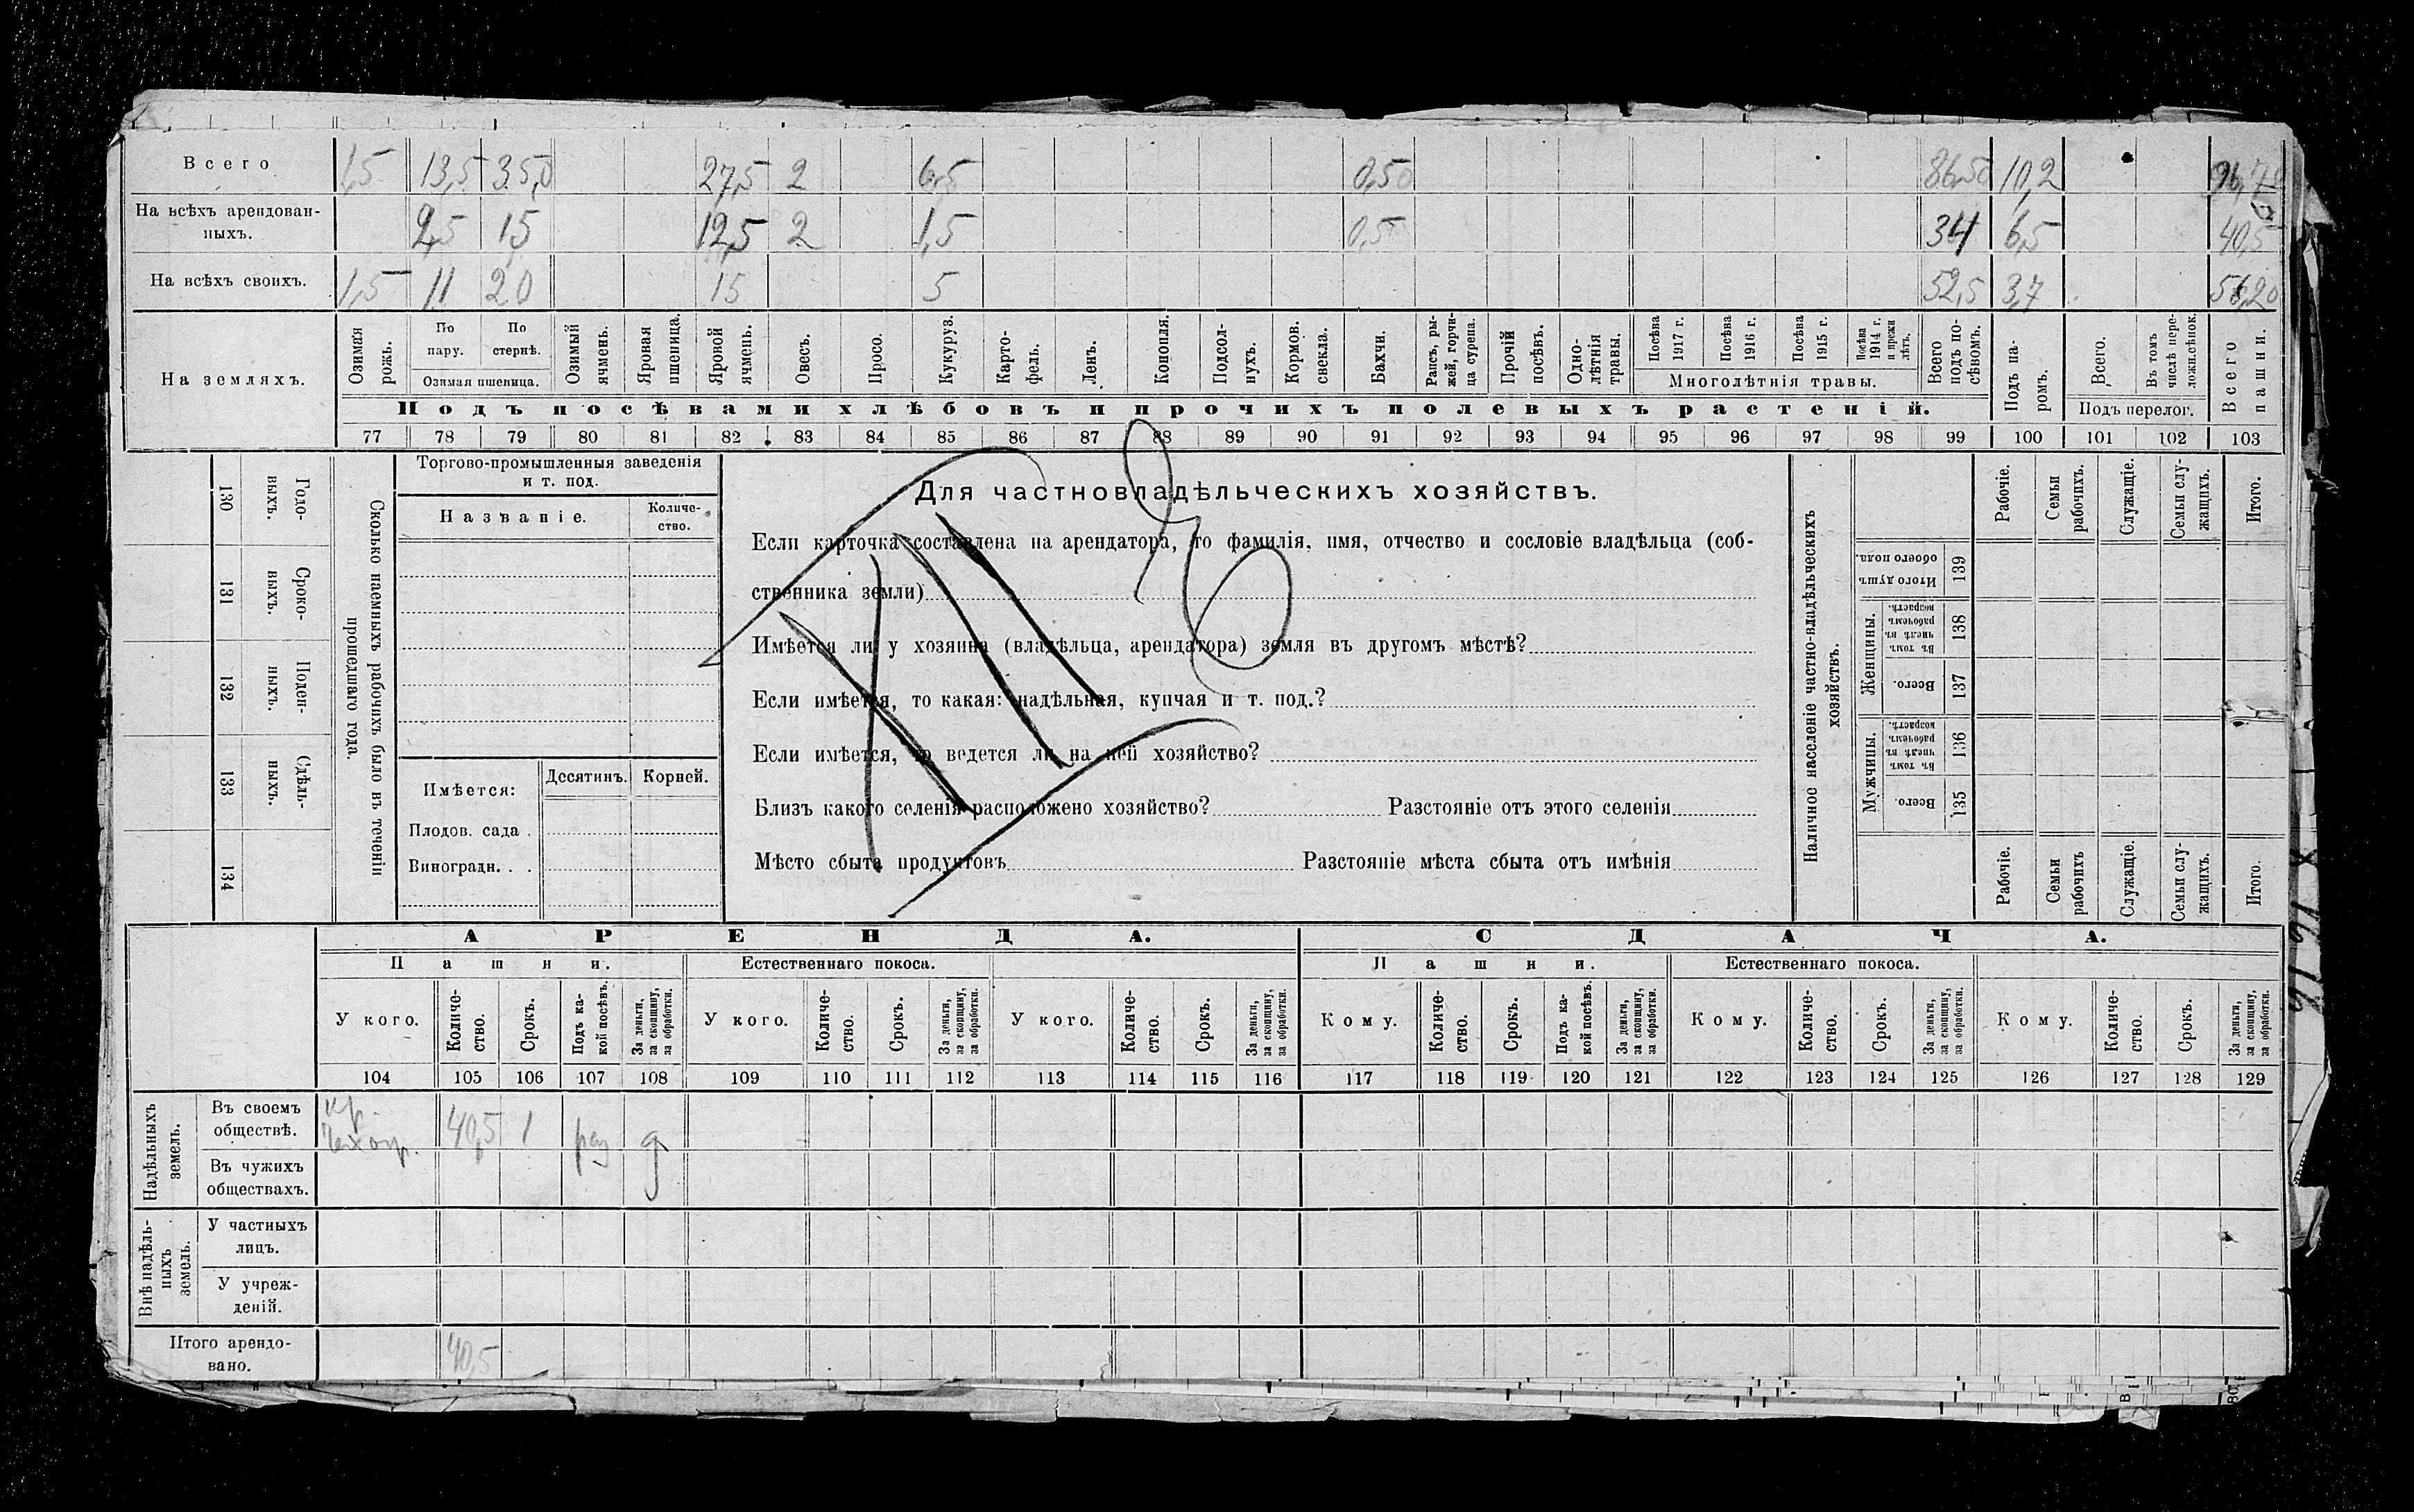 Всего 1,5 13,5 35,0 27,5 2 6,5 0,50 86,50 10,2 96,70
На всѣхъ арендован-
ныхъ. 2,5 15 12,5 2 1,5 0,5 34 6,5 40,5
На всѣхъ своихъ. 1,5 11 20 15 5 52,5 3,7 56,20
На земляхъ.
Озимая рожь.
По пару.
По стернѣ.
Озимая пшеница.
Озимый ячмень.
Яровая пшеница.
Яровой ячмень.
Овесъ.
Просо.
Кукуруз.
Карто-
фель.
Ленъ.
Конопля.
Подсол-
нухъ.
Кормов. свекла.
Бахчи.
Рапсъ, ры-
жей, горчи-
ца сурепа.
Прочій посѣвъ.
Одно-
лѣтнія травы.
Посѣва 1917 г.
Посѣва 1916 г.
Посѣва 1915 г.
Посѣва 1914 г. и прежн лѣтъ.
Многолѣтнія травы.
Всего подъ по-
сѣвомъ.
Подъ па-
ромъ.
Всего.
Въ томъ числѣ пере-
ложн.сѣнок.
Подъ перелог.
Всего пашни.
Подъ посѣвами хлѣбовъ и прочихъ полевыхъ растеній.
77 78 79 80 81 82 83 84 85 86 87 88 89 90 91 92 93 94 95 96 97 98 99 100 101 102 103
Сколько наемныхъ рабочихъ было въ теченіи
прошедшаго года.
Годо-
выхъ.
130
Сроко-
выхъ.
131
Поден-
ныхъ.
132
Сдѣль-
ныхъ.
133
134
Торгово-промышленныя заведенія
и т. под.
Названіе.
Количе-
ство.
Имѣется:
Десятинъ.
Корней.
Плодов. сада .
Виноградн. . .
Для частновладѣльческихъ хозяйствъ.
Если карточка составлена на арендатора, то фамилія, имя, отчество и сословіе владѣльца (соб-
ственника земли)
Имѣется ли у хозяина (владѣльца, арендатора) земля въ другомъ мѣстѣ?
Если имѣется, то какая: надѣльная, купчая и т. под.?
Если имѣется, то ведется ли на ней хозяйство?
Близъ какого селенія расположено хозяйство? Разстояніе отъ этого селенія
Мѣсто сбыта продуктовъ Разстояніе мѣста сбыта отъ имѣнія
Наличное населеніе частно-владѣльческихъ
хозяйствъ.
Рабочіе.
Семьи рабочихъ.
Служащіе.
Семьи слу-
жащихъ.
Итого.
Итого душъ обоего пола.
139
Женщины.
Въ томъ числѣ въ рабочемъ возрастѣ.
138
Всего.
137
Мужчины.
Въ томъ числѣ въ рабочемъ возрастѣ.
136
Всего.
135
Рабочіе.
Семьи рабочихъ
Служащіе.
Семьи слу-
жащихъ.
Итого.
АРЕНДА.
СДАЧА.
Пашни.
Естественнаго покоса.
Пашни.
Естественнаго покоса.
У кого.
Количе-
ство.
Срокъ.
Подъ ка-
кой посѣвъ.
За деньги, за скопщину, за обработки.
У кого.
Количе-
ство.
Срокъ.
За деньги, за скопщину, за обработки.
У кого.
Количе-
ство.
Срокъ.
За деньги, за скопщину, за обработки.
Кому.
Количе-
ство.
Срокъ.
Подъ ка-
кой посѣвъ.
За деньги, за скопщину, за обработки.
Кому.
Количе-
ство.
Срокъ.
За деньги, за скопщину, за обработки.
Кому.
Количе-
ство.
Срокъ.
За деньги, за скопщину, за обработки.
104 105 106 107 108 109 110 111 112 113 114 115 116 117 118 119 120 121 122 123 124 125 126 127 128 129
Надѣльныхъ земель.
Въ своемъ
обществѣ. кр. 40,5 1 раз д
Въ чужихъ
обществахъ.
Внѣ надѣль-
ныхъ земель.
У частныхъ
лицъ.
У учреж-
деній.
Итого арендо-
вано. 40,5